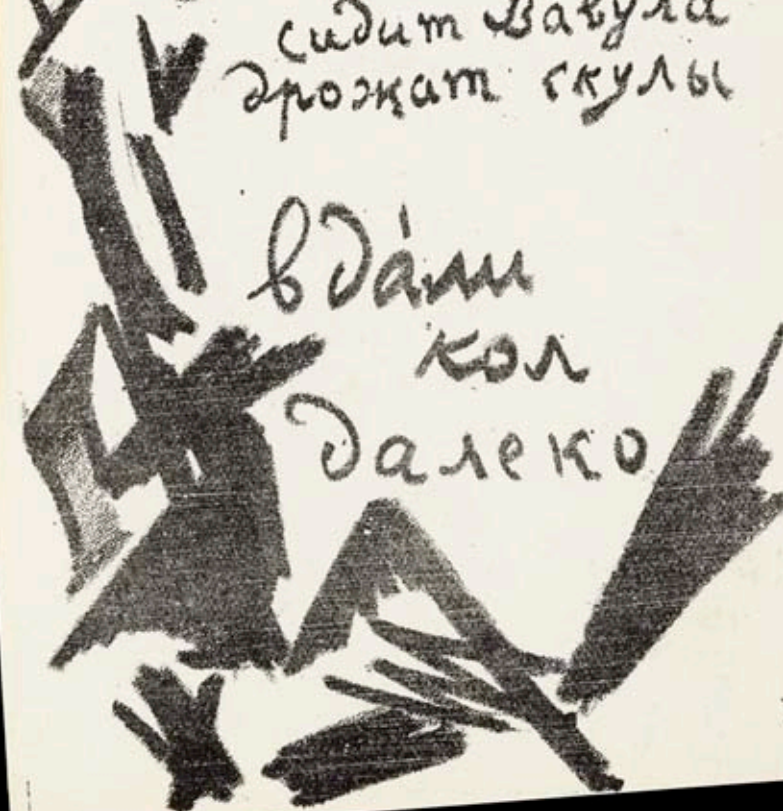 сидит Вавула
дрожат скулы
вда́ли
кол
далеко